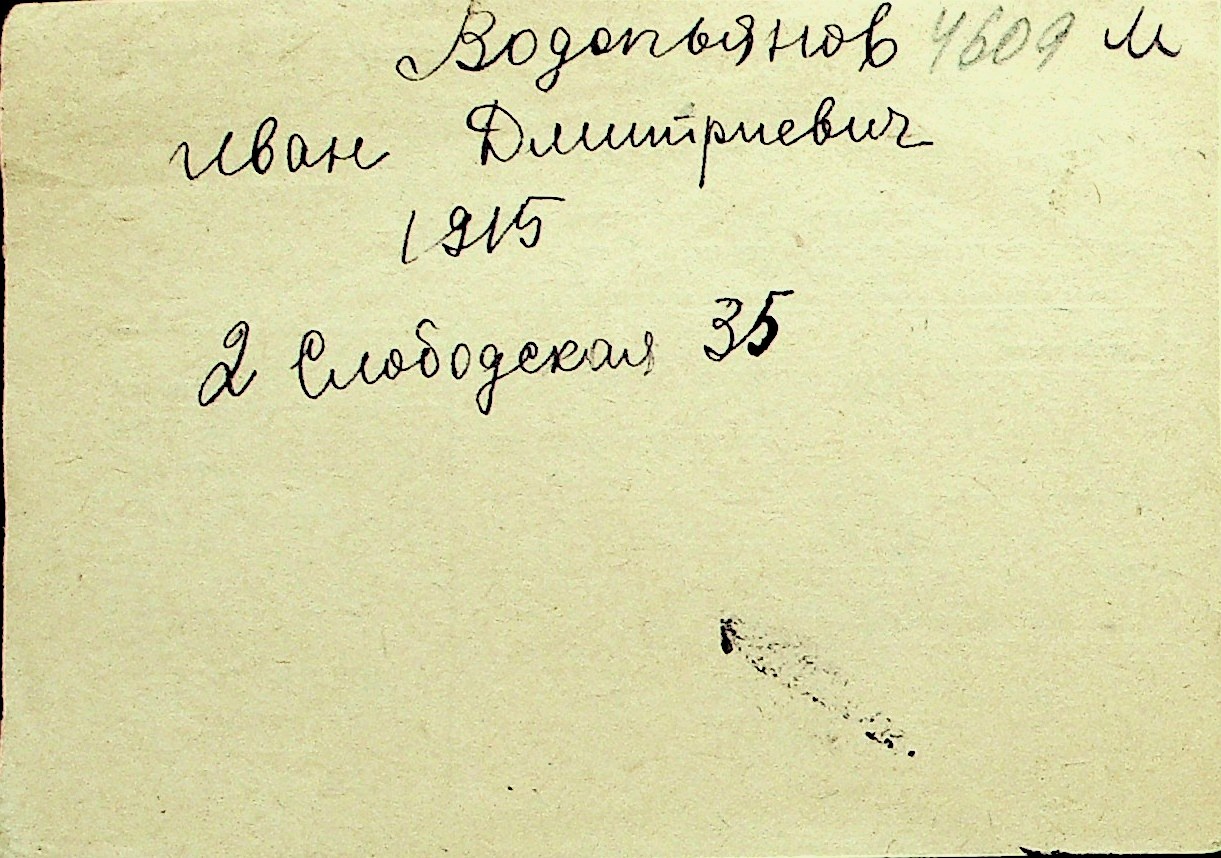 Водопьянов 4609 м
Иван Дмитриевич
1915
2 Слободская 35